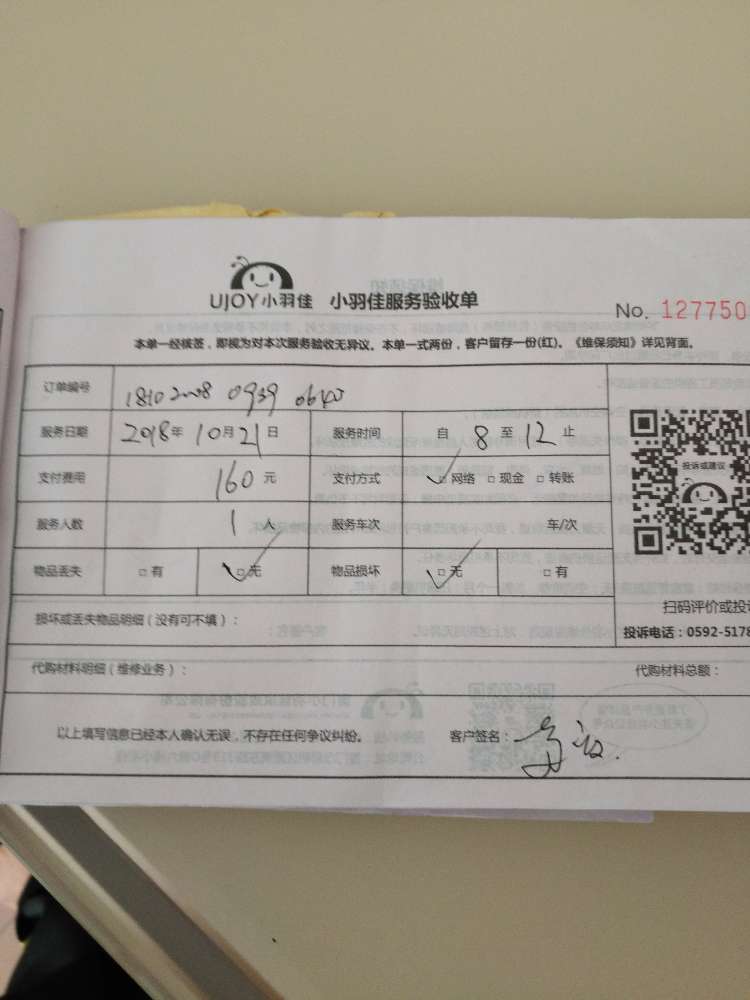 UJOY小羽佳 小羽佳服务验收单
No. 127750
本单一经核签，即视为对本次服务验收无异议。本单一式两份，客户留存一份(红)。《维保须知》详见背面。
订单编号 18102008 0939
服务日期 2018年 10月 21日 服务时间 自 8 至 12 止
支付费用 160 元 支付方式 □网络 □现金 □转账
服务人数 1 人 服务车次 车/次
投诉或建议
物品丢失 □有 □无 物品损坏 □无 □有
扫码评价或投
损坏或丢失物品明细（没有可不填）：
投诉电话：0592-5178
代购材料明细（维修业务）： 代购材料总额：
以上填写信息已经本人确认无误，不存在任何争议纠纷。 客户签名：